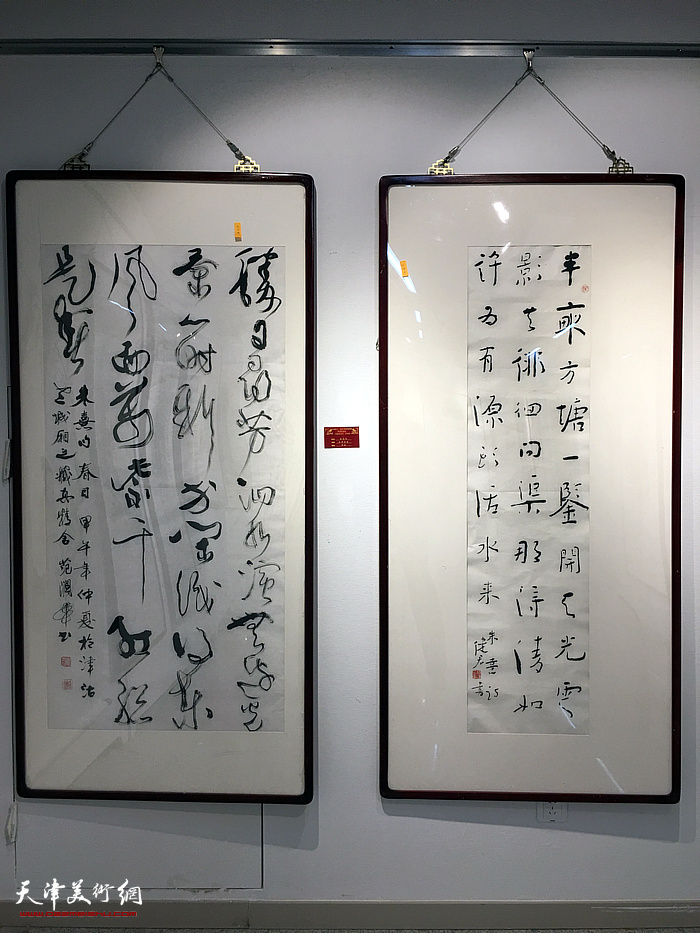 胜日寻芳泗水滨无边光
景一时新等闲识得东
风面万紫千红总
是春
朱熹的春日 甲午年仲夏於津沽
半亩方塘一鑒開天光雲
影共徘徊问渠那得清如
許为有源头活水来
朱熹诗
天津美術網